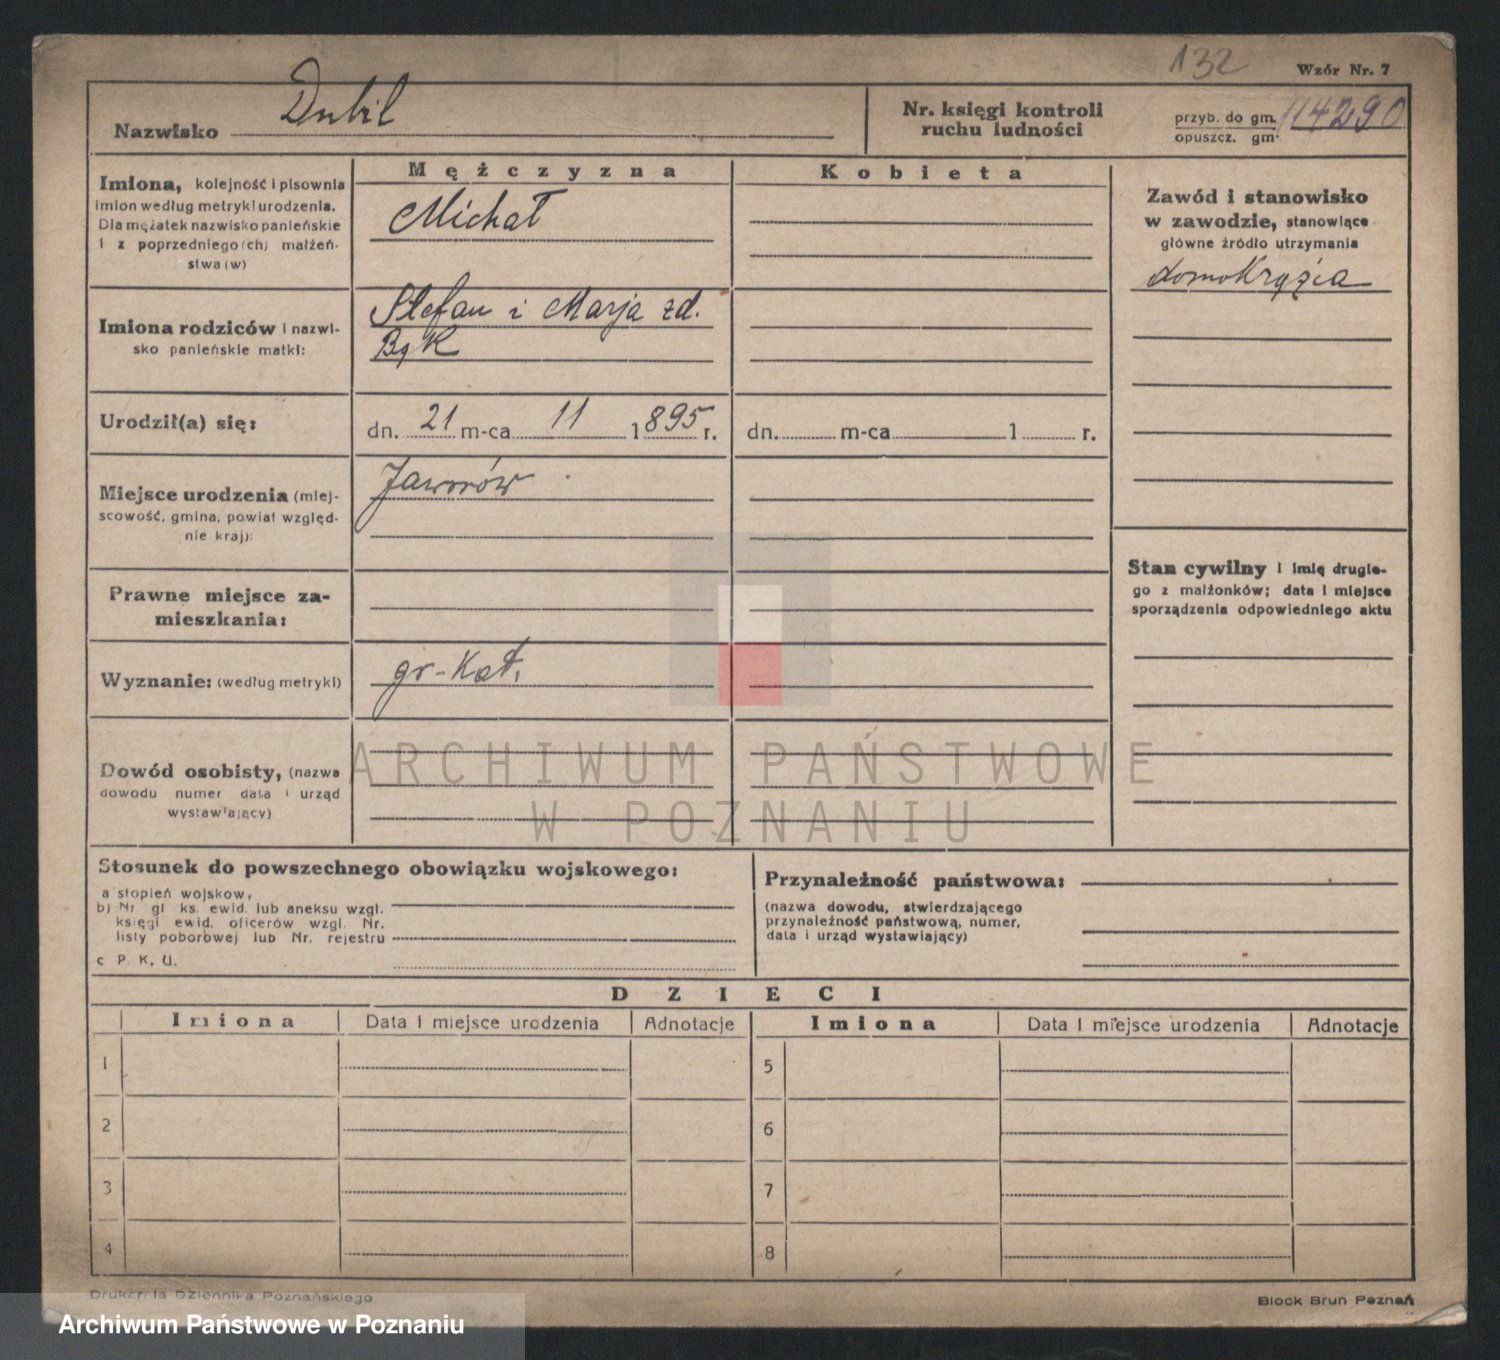 132
Wzór Nr. 7
Nazwisko Dubil
Nr. księgi kontroli
ruchu ludności
przyb. do gm. 114290
opuszcz. gm.
Mężczyzna
Kobieta
Imiona, kolejność i pisownia
imion według metryki urodzenia.
Dla mężatek nazwisko panieńskie
i z poprzedniego(ch) małżeń-
stwa(w)
Michał
Zawód i stanowisko
w zawodzie, stanowiące
główne źródło utrzymania
domokrążca
Imiona rodziców i nazwi-
sko panieńskie matki:
Stefan i Marja zd.
Bąk
Urodził(a) się:
dn. 21 m-ca 11 1895 r.
dn. m-ca 1 r.
Miejsce urodzenia (miej-
scowość, gmina, powiat względ-
nie kraj):
Jaworów
Prawne miejsce za-
mieszkania:
Stan cywilny i imię drugie-
go z małżonków; data i miejsce
sporządzenia odpowiedniego aktu
Wyznanie: (według metryki)
gr-Kat.
Dowód osobisty, (nazwa
dowodu numer data i urząd
wystawiający)
ARCHIWUM PAŃSTWOWE
W POZNANIU
Stosunek do powszechnego obowiązku wojskowego:
a stopień wojskow,
b) Nr. gl ks. ewid. lub aneksu wzgl.
księgi ewid. oficerów wzgl. Nr.
listy poborowej lub Nr. rejestru
c P. K. U.
Przynależność państwowa:
(nazwa dowodu, stwierdzającego
przynależność państwową, numer,
data i urząd wystawiający)
DZIECI
Imiona Data i miejsce urodzenia Adnotacje
Imiona Data i miejsce urodzenia Adnotacje
1
5
2
6
3
7
4
8
Drukarnia Dziennika Poznańskiego
Block Brun Poznań
Archiwum Państwowe w Poznaniu